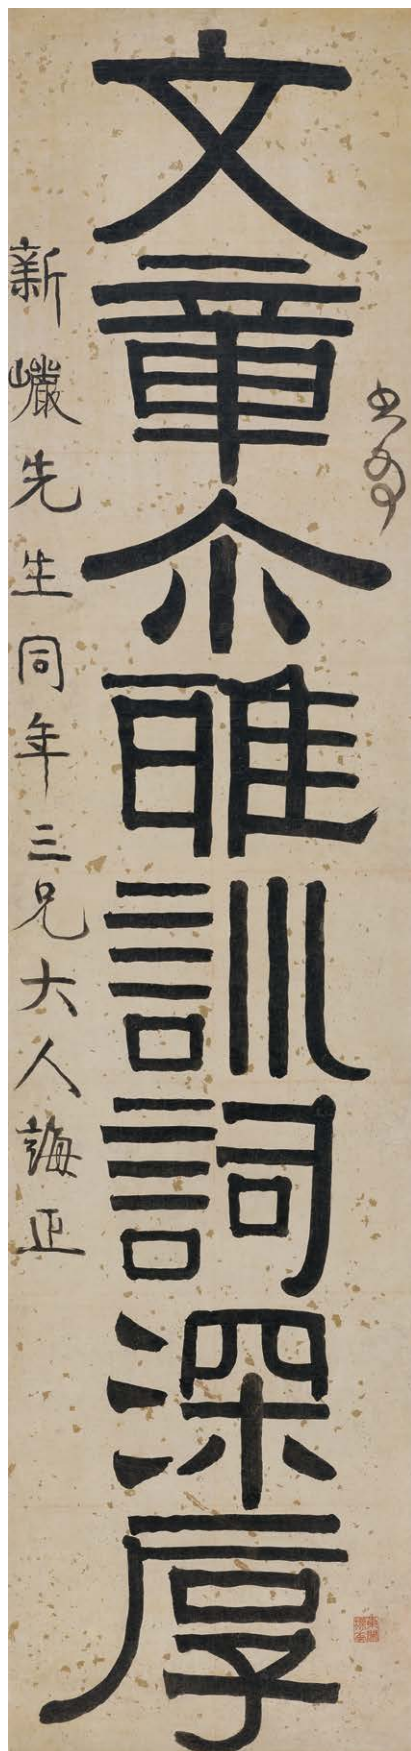 文章尒雅訓詞深厚
新巖先生同年三兄大人誨正